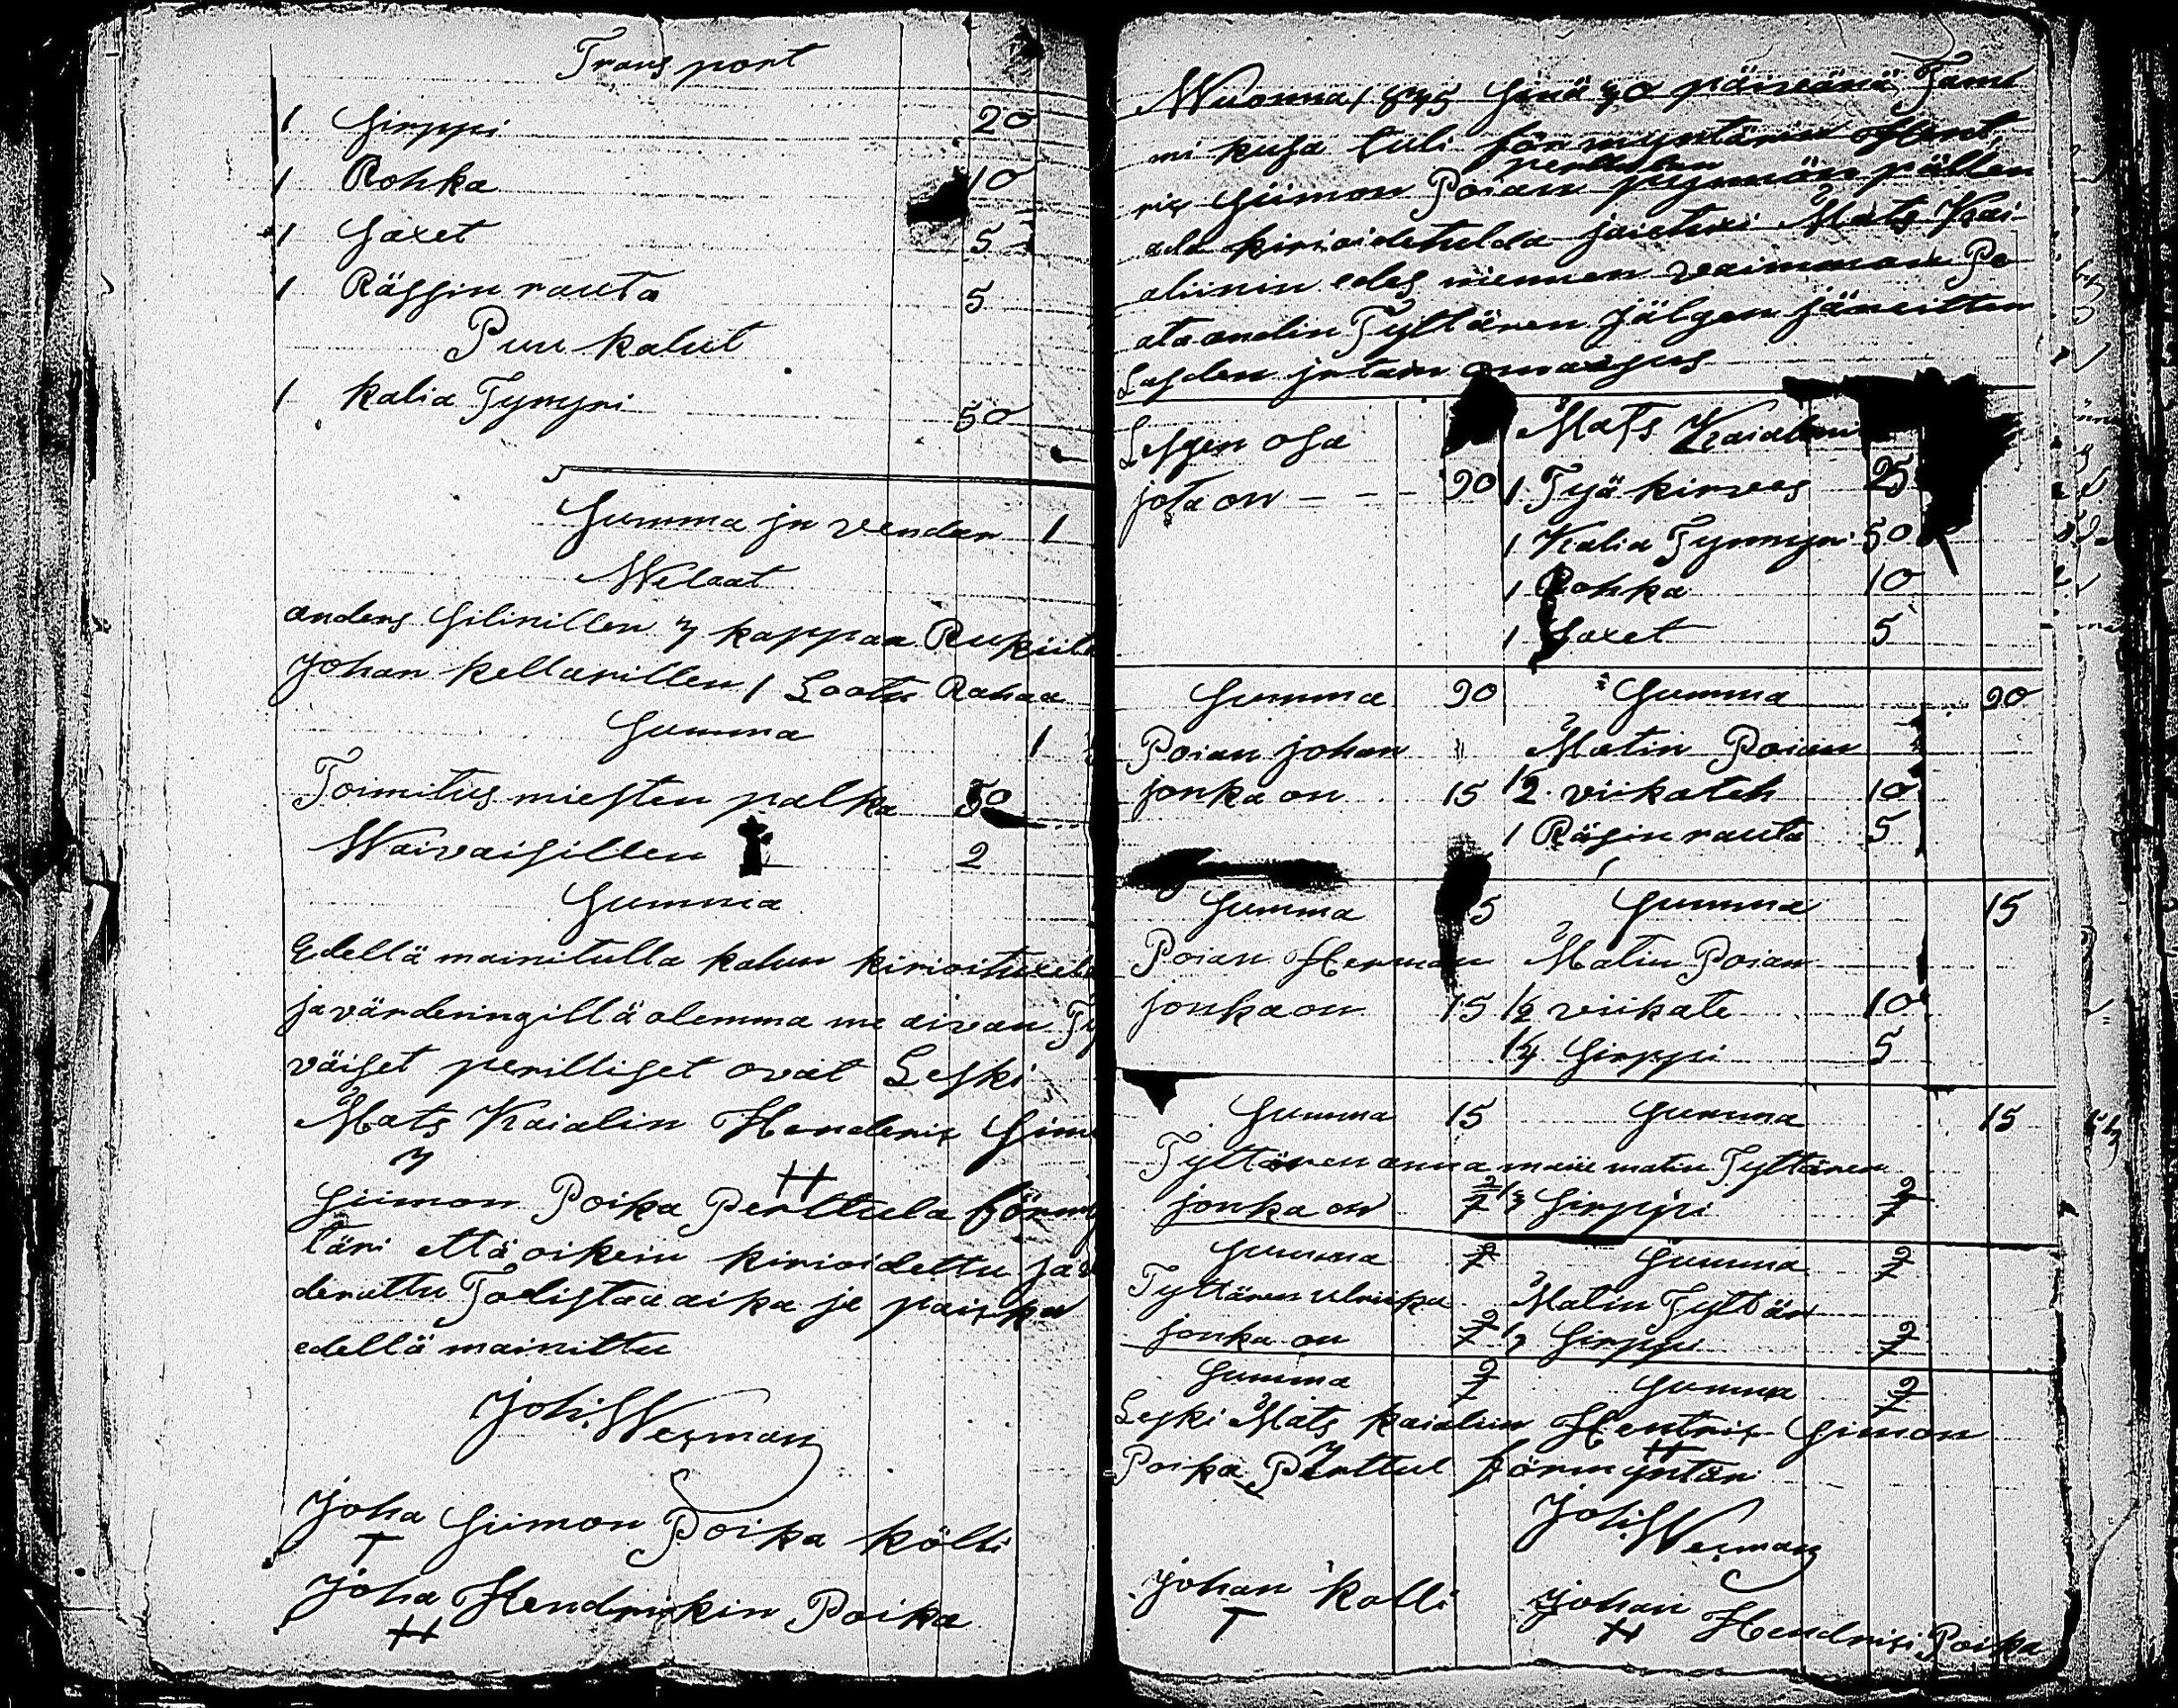 Transport
1 Sirppi 20
1 Rohka 10
1 Saxet 5
1 Rässin rauta 5
Puu kalut
1 kalia Tynnyri 50
Summa ju vendar 1
Welaat
anders Silinillen 3 kappaa Rukiita
Johan kellarillen 1 Lootu Rahaa
Summa 1
Toimitus miesten palka 50
Waivaisillen 2
Summa
Edellä mainitulla kalun kirioituxela
ja värderingillä olemma me aivan Ty
väiset perilliset ovat Leski
Mats Kaialin Henderix Sim
Siimon Poika Perttula förmy
täri että oikein kirioidettu ja v
derattu Todistaa aika ja paikka
edellä mainittu
Joh: Wexman
Joha Siimon Poika kölli
T
Joha Hendrikin Poika
H
Wuonna 1845 Sinä 30 päiveänä Tami
mi kusa tuli förmyntärin Hent
perttulan
rix Siimon Poian pyynnön pällen
ala kirioidetulda jaietuxi Mats Kai
alinin edes mennen vaimman Po
ata andin Tyttären jälgen jäneitten
Lasden jotain omaisus
Lesgen osa Mats Kaialin
jota on - - - 90 1 Tyä kirves 25
1 Kalia Tynnyri 50
1 Rohka 10
1 Saxet 5
Summa 90 Summa 90
Poian johan Matin Poian
jonka on 15 1/2 viikateh 10
1 Räsin rauta 5
Summa 15 Summa 15
Poian Herman Matin Poian
jonka on 15 1/2 viikate 10
1/4 Sirppi 5
Summa 15 Summa 15
Tyttären anna maiie matin Tyttären
jonka on 1/3 Sirppi
Summa Summa
Tyttären ulriika Matin Tyttär
jonka on Sirppi
Summa Summa
Leski Mats kaialin Hentrix Simon
Poika Perttul förmyntäri
Joh: Wexman
Johan Kolli Johan Hendrixi Poika
T H